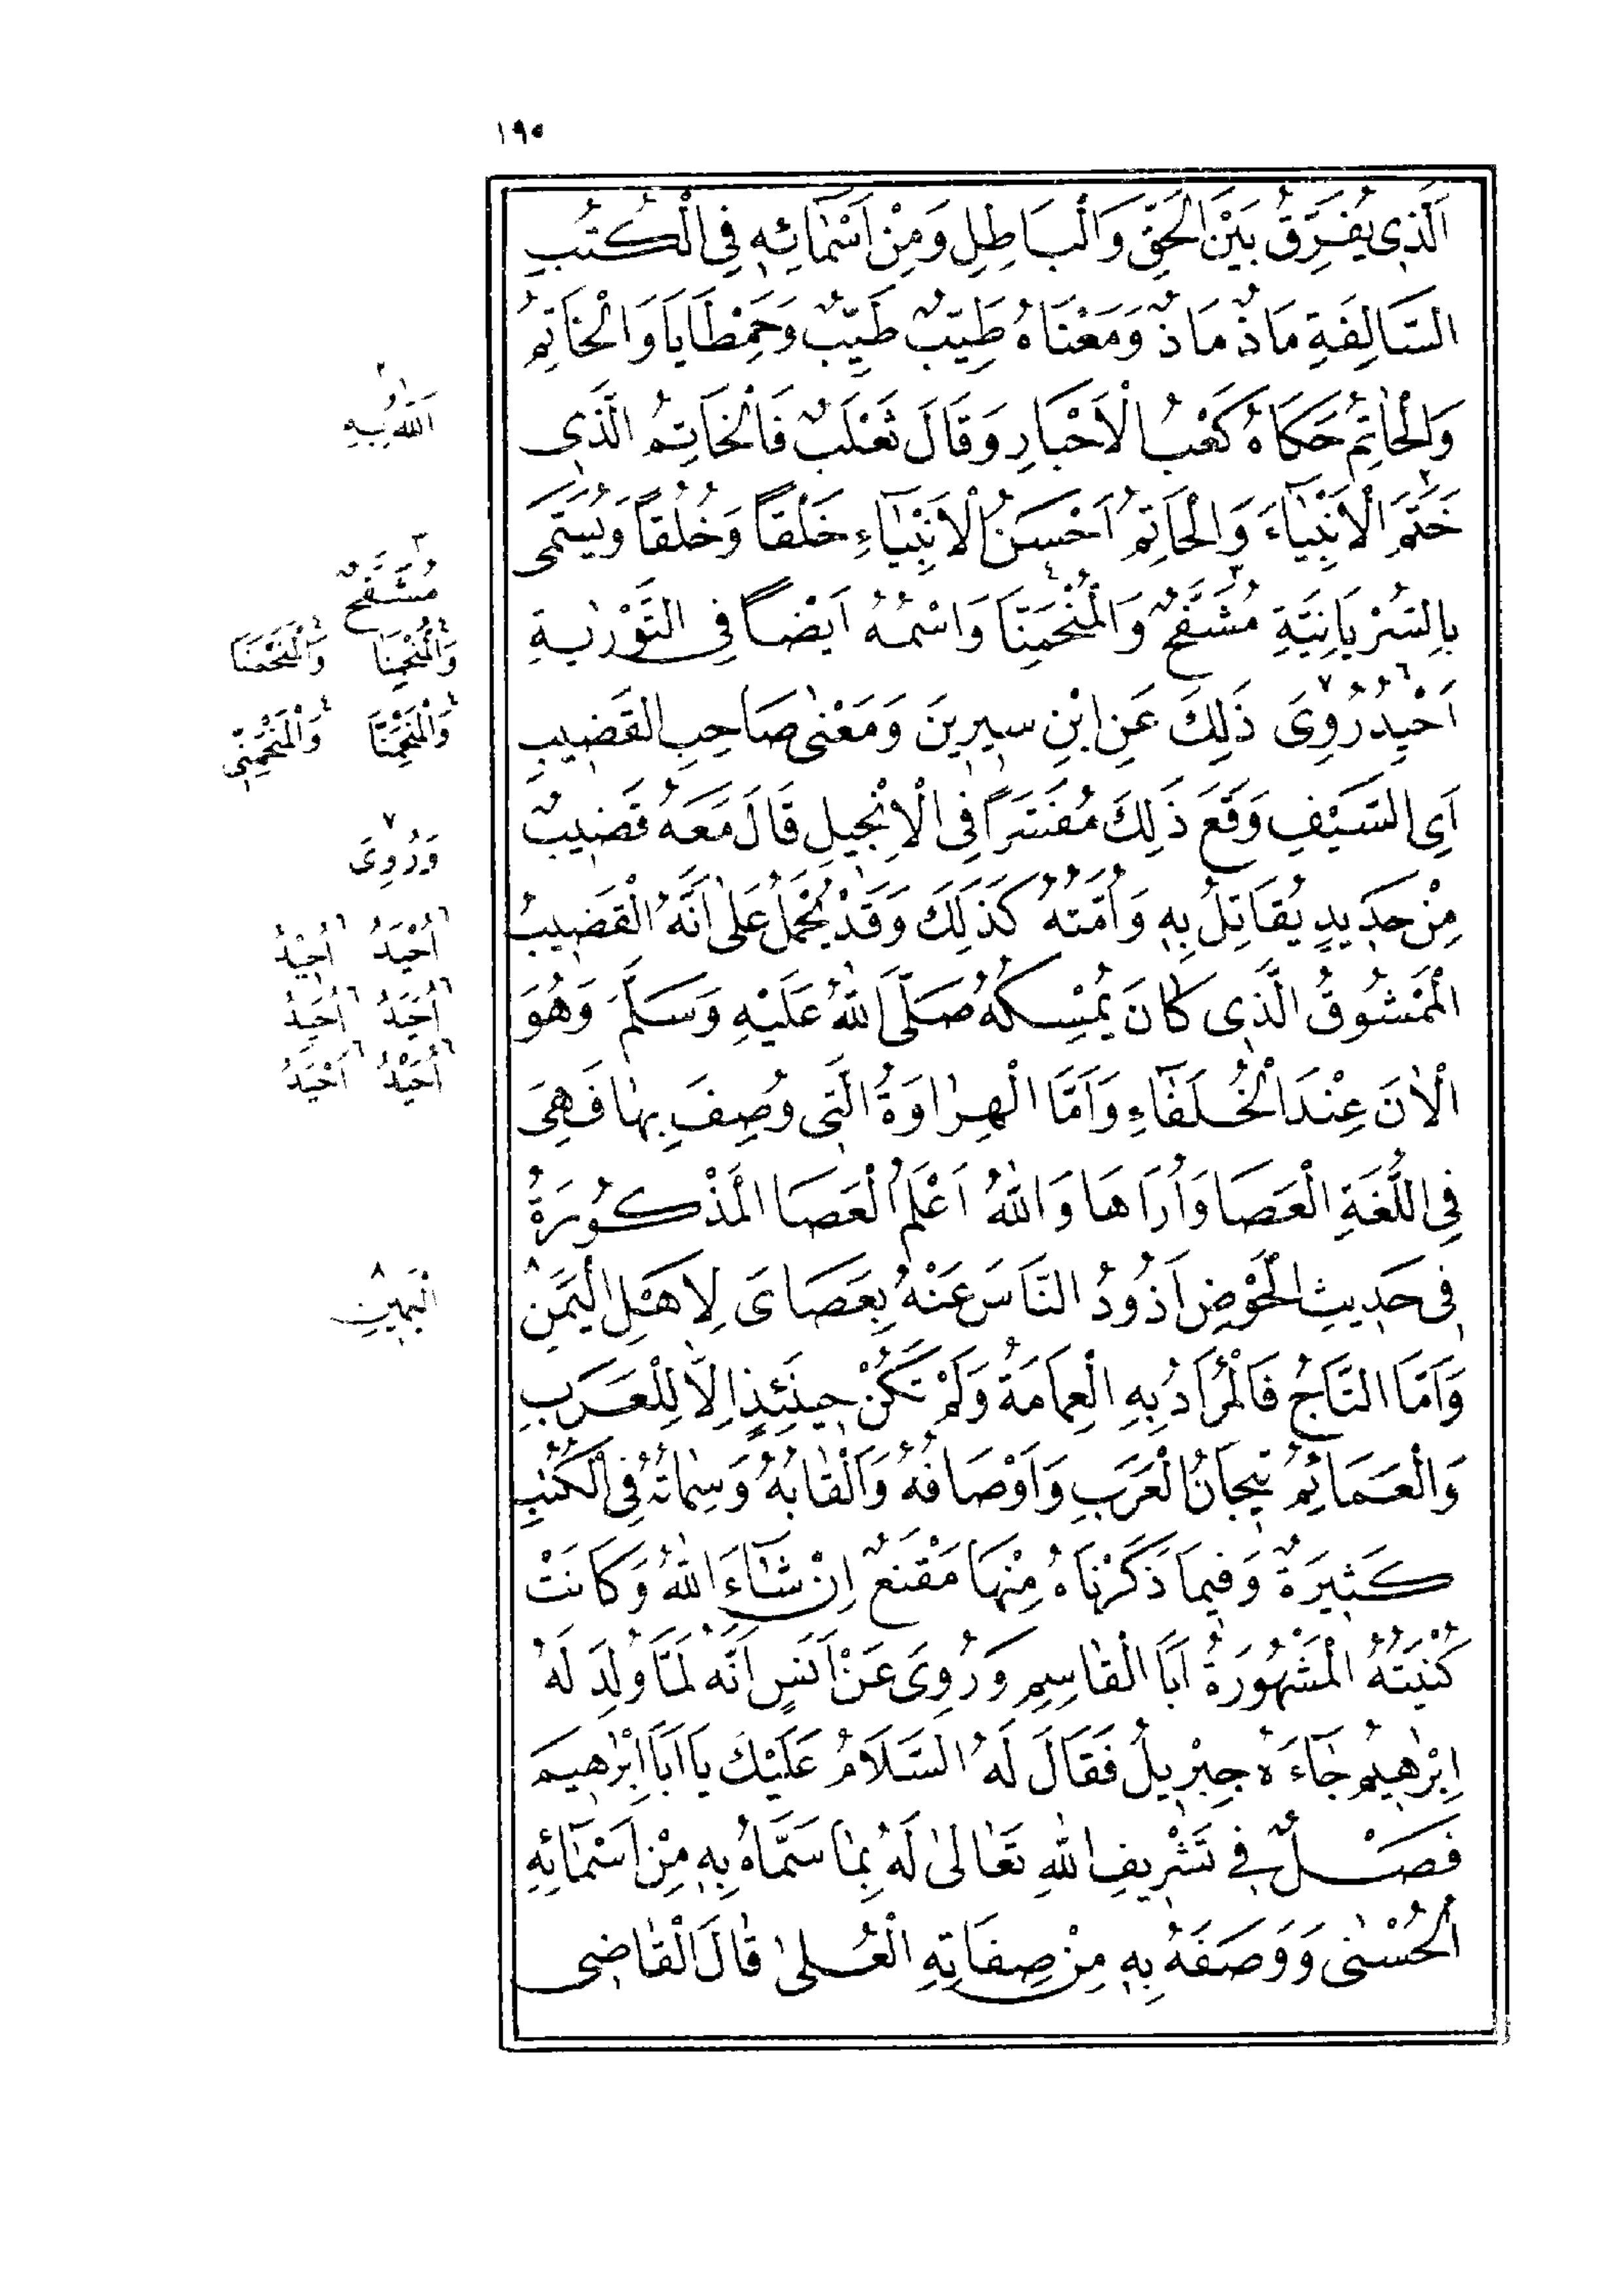 ١٩٥
اَلَّذِى يُفَرِّقُ بَيْنَ الْحَقِّ وَالْبَاطِلِ وَمِنْ اَسْمَائِهِ فِى الْكُتُبِ
السَّالِفَةِ مَاذْ مَاذْ وَمَعْنَاهُ طَيِّبٌ طَيِّبٌ وَحَمْطَايَا وَالْخَاتِمُ
وَالْحَاتِمُ حَكَاهُ كَعْبُ الْاَحْبَارِ وَقَالَ ثَعْلَبٌ فَالْخَاتِمُ الَّذِى
خَتَمَ الْاَنْبِيَاءَ وَالْحَاتِمُ اَحْسَنُ الْاَنْبِيَاءِ خَلْقاً وَخُلُقاً وَيُسَمَّى
بِالسُّرْيَانِيَّةِ مُشَفَّحٌ وَالْمُنْحَمِنَّا وَاسْمُهُ اَيْضاً فِى التَّوْرٰيةِ
اُحْيِدُ رُوِىَ ذَلِكَ عَنِ ابْنِ سِيرِينَ وَمَعْنٰى صَاحِبِ الْقَضِيبِ
اَىِ السَّيْفِ وَقَعَ ذَلِكَ مُفَسَّراً فِى الْاِنْجِيلِ قَالَ مَعَهُ قَضِيبٌ
مِنْ حَدِيدٍ يُقَاتِلُ بِهِ وَاُمَّتُهُ كَذَلِكَ وَقَدْ يُحْمَلُ عَلٰى اَنَّهُ الْقَضِيبُ
الْمَمْشُوقُ الَّذِى كَانَ يُمْسِكُهُ صَلَّى اللهُ عَلَيْهِ وَسَلَّمَ وَهُوَ
الْاٰنَ عِنْدَ الْخُلَفَاءِ وَاَمَّا الْهِرَاوَةُ الَّتِى وُصِفَ بِهَا فَهِىَ
فِى اللُّغَةِ الْعَصَا وَاُرَاهَا وَاللهُ اَعْلَمُ الْعَصَا الْمَذْكُورَةُ
فِى حَدِيثِ الْحَوْضِ اَذُودُ النَّاسَ عَنْهُ بِعَصَاىَ لِاَهْلِ الْيَمَنِ
وَاَمَّا التَّاجُ فَالْمُرَادُ بِهِ الْعِمَامَةُ وَلَمْ تَكُنْ حِينَئِذٍ اِلَّا لِلْعَرَبِ
وَالْعَمَائِمُ تِيجَانُ الْعَرَبِ وَاَوْصَافُهُ وَاَلْقَابُهُ وَسِمَاتُهُ فِى الْكُتُبِ
كَثِيرَةٌ وَفِيمَا ذَكَرْنَاهُ مِنْهَا مَقْنَعٌ اِنْ شَاءَ اللهُ وَكَانَتْ
كُنْيَتُهُ الْمَشْهُورَةُ اَبَا الْقَاسِمِ وَرُوِىَ عَنْ اَنَسٍ اَنَّهُ لَمَّا وُلِدَ لَهُ
اِبْرٰهِيمُ جَاءَهُ جِبْرِيلُ فَقَالَ لَهُ السَّلَامُ عَلَيْكَ يَا اَبَا اِبْرٰهِيمَ
فَصْلٌ فِى تَشْرِيفِ اللهِ تَعَالٰى لَهُ بِمَا سَمَّاهُ بِهِ مِنْ اَسْمَائِهِ
الْحُسْنٰى وَوَصَفَهُ بِهِ مِنْ صِفَاتِهِ الْعُلٰى قَالَ الْقَاضِى
٢
اَللهُ بِهِ
٣
مُشَقَّحٌ
٤ وَالْمُنْحَمِنَا ٤ وَالْمَنْحَمَنَا
٤ وَالْمَنْحَمِنَّا ٤ وَالْمُنْحَمِنّىٰ
٧
وَرُوِىَ
٦ اُحْيَدُ ٦ اُحِيْدُ
٦ اُحَيَدُ ٦ اُحَيِدُ
٦ اُحَيْدُ ٦ اَحْيَدُ
٨
الْيَمِينِ